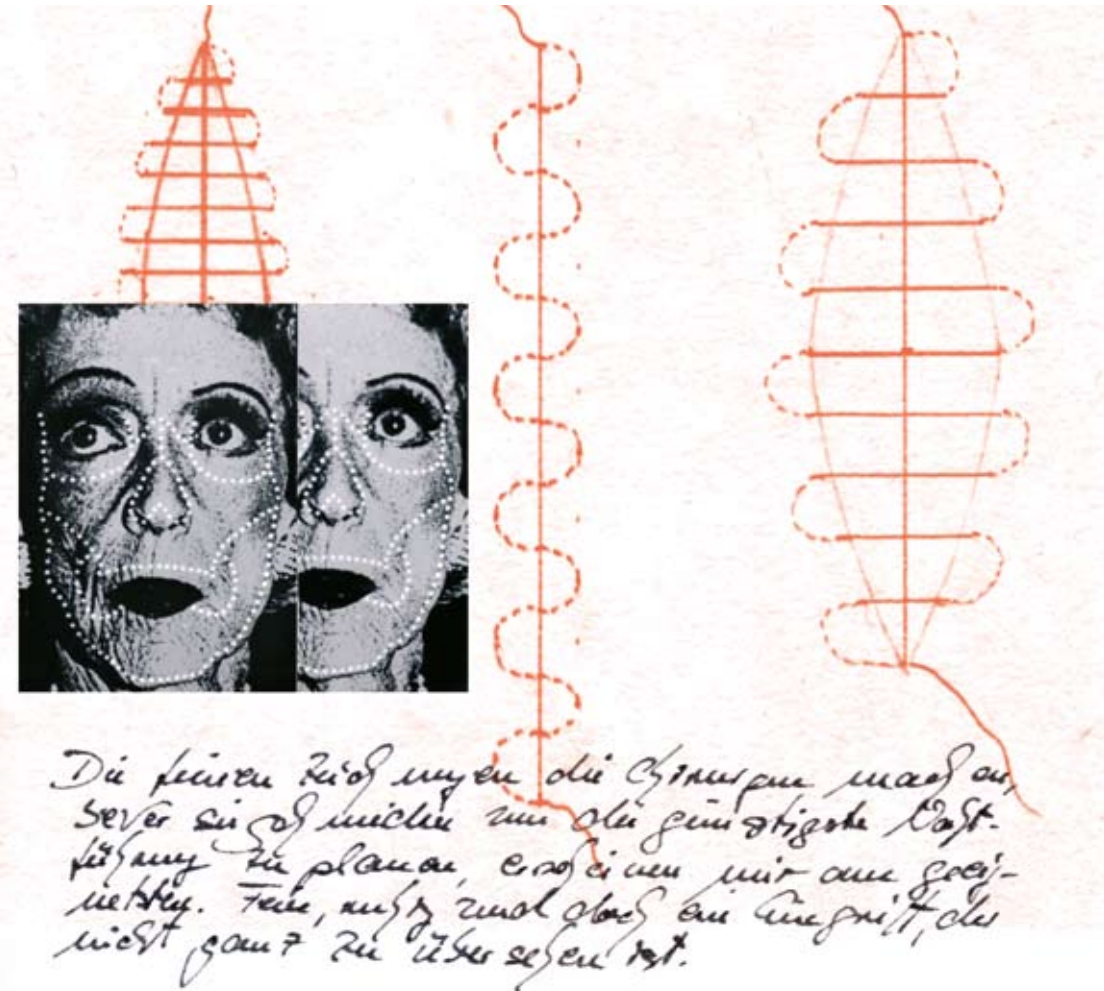 Die feinen Zeichnungen die Chirurgen machen,
bevor sie schneiden um die günstigste Naht-
führung zu planen, erscheinen mir am geeig-
netsten. Fein, ruhig und doch ein Eingriff, der
nicht ganz zu übersehen ist.